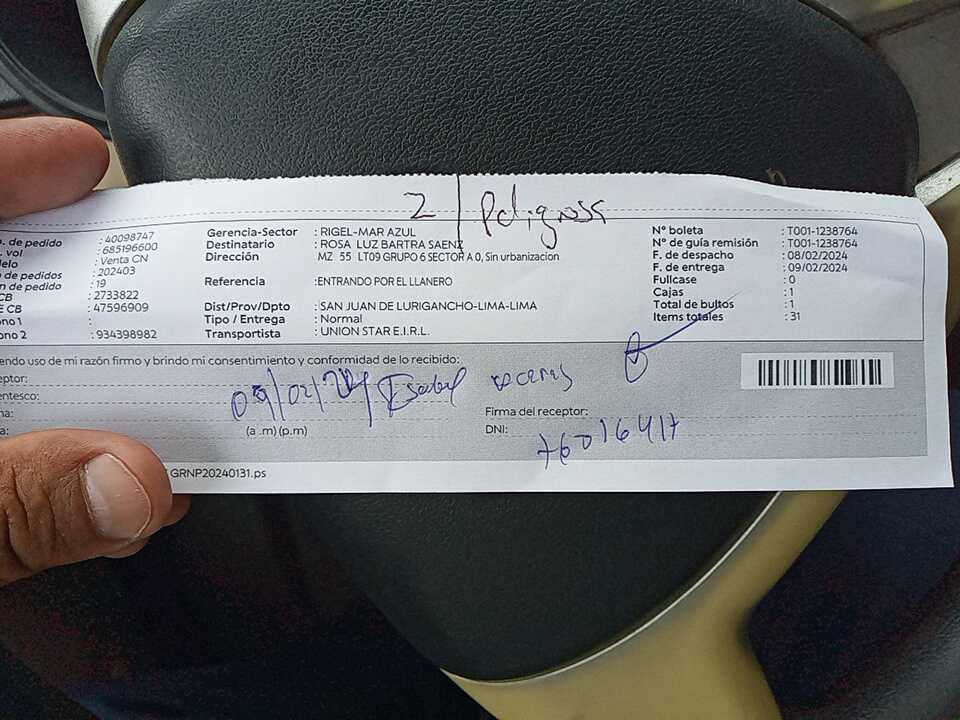 2 Peligrosa
. de pedido : 40098747
. vol : 685196600
delo : Venta CN
de pedidos : 202403
n de pedido : 19
CB : 2733822
E CB : 47596909
ono 1 :
ono 2 : 934398982
Gerencia-Sector : RIGEL-MAR AZUL
Destinatario : ROSA LUZ BARTRA SAENZ
Dirección MZ 55 LT09 GRUPO 6 SECTOR A 0, Sin urbanizacion
Referencia :ENTRANDO POR EL LLANERO
Dist/Prov/Dpto : SAN JUAN DE LURIGANCHO-LIMA-LIMA
Tipo / Entrega : Normal
Transportista : UNION STAR E.I.R.L.
N° boleta : T001-1238764
N° de guía remisión : T001-1238764
F. de despacho : 08/02/2024
F. de entrega : 09/02/2024
Fullcase : 0
Cajas : 1
Total de bultos : 1
Items totales : 31
endo uso de mi razón firmo y brindo mi consentimiento y conformidad de lo recibido:
eptor:
entesco:
na:
a:
09/02/24 Isabel
(a .m) (p.m)
Firma del receptor:
DNI: 76016417
GRNP20240131.ps